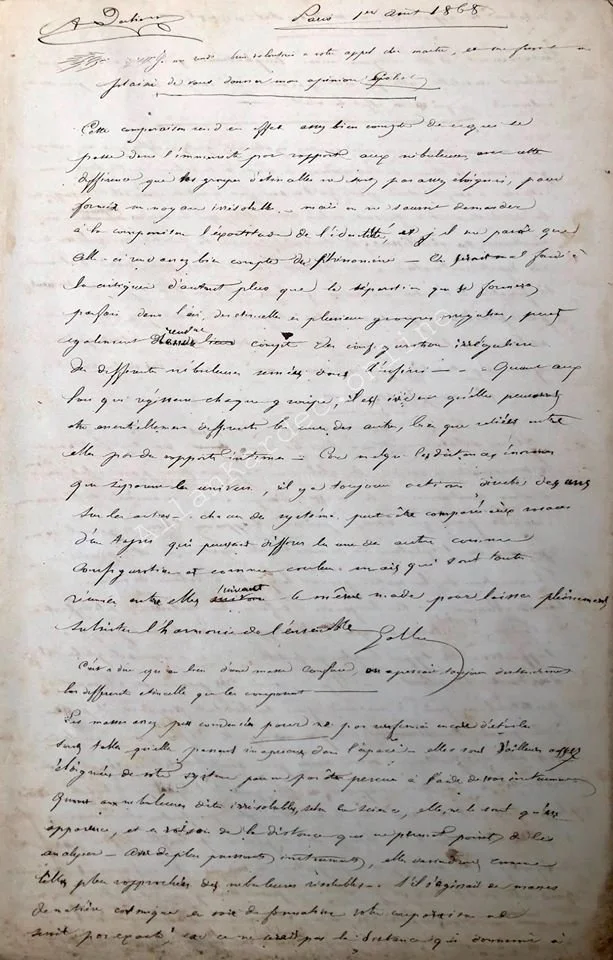 Paris 1er Août 1868
me rends bien volontiers à votre appel cher maître, et me ferai un
plaisir de vous donner mon opinion Galilée
Cette comparaison rend en effet assez bien compte de ce qui se
passe dans l'immensité par rapport aux nébuleuses avec cette
différence que les groupes d'étincelles ne sont pas assez éloignés, pour
former un noyau irrésoluble - mais on ne saurait demander
à la comparaison l'exactitude de l'identité, et il me paraît que
celle-ci rend assez bien compte du phénomène - On serait mal fondé à
la critiquer d'autant plus que la séparation qui se forme
parfois dans l'air, des étincelles en plusieurs groupes irréguliers, peut
également rendre compte des configurations irrégulières
des différentes nébuleuses semées dans l'infini - - Quant aux
lois qui régissent chaque groupe, il est évident qu'elles peuvent
être essentiellement différentes les unes des autres, bien que reliées entre
elles par des rapports intimes - Car malgré les distances énormes
qui séparent les univers, il y a toujours action directe des uns
sur les autres - chacun des systèmes peut être comparé aux
d'un qui peuvent différer les uns des autres comme
configuration et comme couleur mais qui sont toutes
réunies entre elles suivant le même mode pour laisser pleinement
subsister l'harmonie de l'ensemble Galilée
C'est à dire qu'au lieu d'une masse confuse, on aperçoit toujours distinctement
les différentes étincelles qui les composent
Les masses assez peu condensées pour ne pas renfermer encore d'étoiles
sont telles qu'elles passent inaperçues dans l'espace - elles sont d'ailleurs assez
éloignées de votre système pour ne pas être perçues à l'aide de vos instruments
Quant aux nébuleuses dites irrésolubles, selon la science, elles ne le sont qu'en
apparence, et en raison de la distance qui ne permet point de les
analyser - Avec de plus puissants instruments, elles seraient comme
celles plus rapprochées des nébuleuses résolubles - S'il s'agissait de masses
de matière cosmique en voie de formation votre comparaison ne
serait pas exacte, car ce ne serait pas la distance qui donnerait à